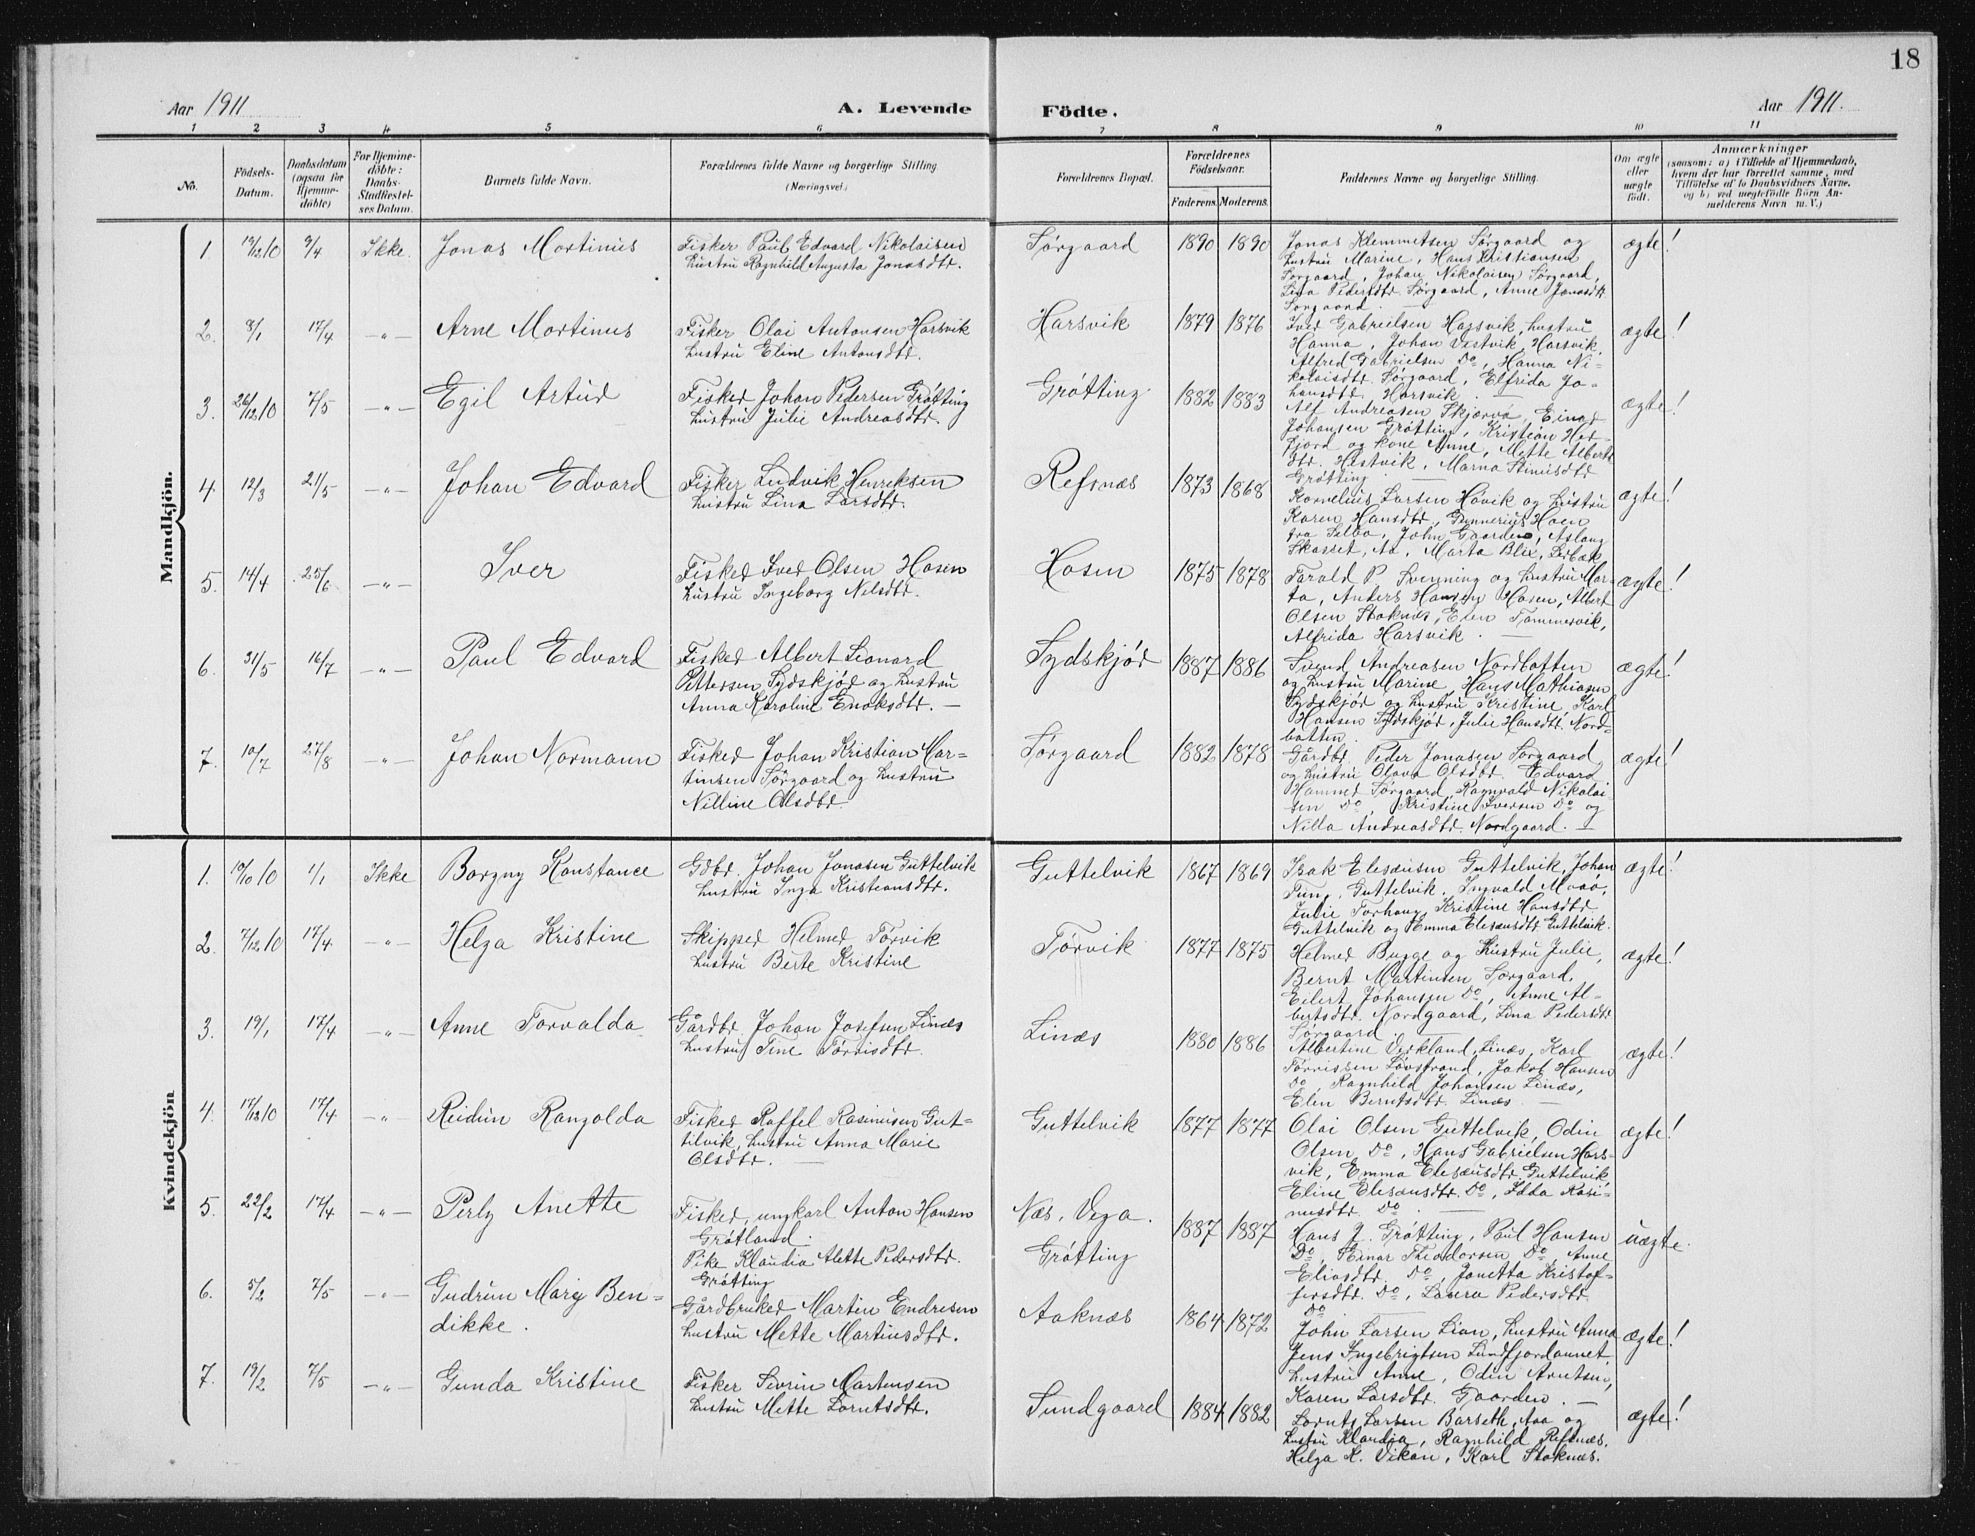 18
Aar 1911
A. Levende Födte.
Aar 1911.
1 2 3 4 5 6 7 8 9 10 11
No.
Födsels-
Datum.
Daabsdatum
(ogsaa for
Hjemme-
döbte)
For Hjemme-
döbte:
Daabs-
Stadfæstel-
ses Datum.
Barnets fulde Navn.
Forældrenes fulde Navne og borgerlige Stilling
(Næringsvei)
Forældrenes Bopæl.
Forældrenes
Födselsaar.
Faderens. Moderens.
Faddernes Navne og borgerlige Stilling.
Om ægte
eller
uægte
födt.
Anmærkninger
(saasom: a) i Tilfælde af Hjemmedaab,
hvem der har forrettet samme, med
Tilföielse af to Daabsvidners Navne,
og b) ved uægtefödte Börn An-
melderens Navn m. V.)
Mandkjön.
1. 19/12 10 9/4 Ikke. Jonas Mortinus
Fisker Paul Edvard Nikolaisen
hustru Ragnhild Augusta Jonasdtr.
Sørgaard 1890 1890
Jonas Klemmetsen Sørgaard og
hustru Marine, Hans Kristiansen
Sørgaard, Johan Nikolaisen Sørgaard,
Lina Pedersdtr Sørgaard, Anne Jonasdtr
Sørgaard.
ægte!
2. 8/1 17/4 -"- Arne Mortinus
Fisker Olai Antonsen Harsvik
hustru Eline Antonsdtr.
Harsvik 1879 1876
Iver Gabrielsen Harsvik, hustru
Hanna, Johan Vestvik, Harsvik,
Alfred Gabrielsen Do, Hanna Ni-
kolaisdtr Sørgaard, Elfrida Jo-
hansdtr. Harsvik.
ægte!
3. 26/12 10 7/5 -"- Egil Artur
Fisker Johan Pedersen Grøtting
hustru Julie Andreasdtr.
Grøtting 1882 1883
Alf Andreasen Skjærvø, Einar
Johansen Grøtting, Kristian Hof-
fjord og kone Anne, Mette Alberts
dtr. Hestvik, Marna Simusdtr
Grøtting
ægte!
4. 12/3 21/5 -"- Johan Edvard
Fisker Ludvik Henriksen
hustru Lina Larsdtr.
Refsnæs 1873 1868
Kornelius Larsen Høvik og hustru
Karen Hansdtr, Gunnerius Hoen
fra Selbo, John Gaarden, Aslaug
Skasset, Aa, Marta Blix, Lerbæk
ægte!
5. 14/4 25/6 -"- Iver
Fisker Iver Olsen Hosen
hustru Ingeborg Nilsdtr.
Hosen 1875 1878
Tarald P. Svenning og hustru Mar-
ta, Anders Hansen Hosen, Albert
Olsen Stoknes, Elen Tømmervik,
Alfrida Harsvik.
ægte!
6. 31/5 16/7 -"- Paul Edvard
Fisker Albert Leonard
Pettersen Sydskjør og hustru
Anna Karoline Enoksdtr.
Sydskjør 1887 1886
Svend Andreasen Nordbotten
og hustru Marine, Hans Mathiasen
Sydskjør og hustru Kristine, Karl
Hansen Sydskjør, Julie Hansdtr Nord-
botten.
ægte!
7. 10/7 27/8 -"- Johan Normann
Fisker Johan Kristian Mar-
tinsen Sørgaard og hustru
Nilline Olsdtr
Sørgaard 1882 1878
Gårdbr. Peder Jonasen Sørgaard
og hustru Olava Olsdtr. Edvard
Hammer Sørgaard, Ragnvald Nikolai
sen Do, Kristine Iversen Do og
Nilla Andreasdtr. Nordgaard.
ægte!
Kvindekjön
1. 10/10 10 1/1 Ikke Borgny Konstance
Gdbr. Johan Jonasen Guttelvik
hustru Inga Kristiansdtr.
Guttelvik 1867 1869
Isak Elesæusen Guttelvik, Johan
Fung, Guttelvik, Ingvald Moaø,
Julie Torhaug, Kristine Hansdtr
Guttelvik og Emma Elesæusdtr Guttelvik.
ægte!
2. 7/12 10 17/4 -"- Helga Kristine
Skipper Helmer Tørvik
hustru Berte Kristine
Tørvik 1877 1875
Helmer Bugge og hustru Julie,
Bernt Martinsen Sørgaard,
Eilert Johansen Do, Anne Al-
bertsdtr. Nordgaard, Lina Pedersdtr
Sørgaard.
ægte!
3. 19/1 17/4 -"- Anne Torvalda
Gårdbr. Johan Josefsen Linæs
hustru Tine Tørrisdtr.
Linæs 1880 1886
Albertine Verkland, Linæs, Karl
Tørrissen Løvstrand, Jakob Hansen
Do, Ragnhild Johansen Linæs,
Elen Berntsdtr. Linæs
ægte!
4. 17/12 10 17/4 -"- Reidun Rangolda
Fisker Raffel Rasinusen Gut-
telvik, hustru Anna Marie
Olsdtr.
Guttelvik 1877 1877
Olai Olsen Guttelvik, Odin
Olsen Do, Hans Gabrielsen Hars-
vik, Emma Elesæusdtr. Guttelvik
Eline Elesæusdtr. Do, Edda Rasi-
nusdtr. Do
ægte!
5. 22/2 17/4 -"- Perly Anette
Fisker, ungkarl Anton Hansen
Grøtland.
Pike Klaudia Alette Pedersdtr.
Grøtting
Næs, Vega.
Grøtting
1887 1887
Hans J. Grøtting, Paul Hansen
Do, Einar Theodorsen Do, Anne
Eliasdtr. Do, Janetta Kristof-
fersdtr. Do, Laura Pedersdtr.
Do
uægte.
6. 5/2 7/5 -"- Gudrun Mary Ben-
dikke.
Gårdbruker Martin Endresen
hustru Mette Martinsdtr.
Aaknæs 1864 1872
John Larsen Lian, hustru Anna
Jens Ingebrigtsen Sundfjordaunet,
hustru Anne, Odin Arntsen,
Karen Larsdtr. Gaarden.
ægte!
7. 19/2 7/5 -"- Gunda Kristine
Fisker Sevrin Martensen
hustru Mette Larntsdtr.
Sundgaard 1884 1882
Lornts Larsen Barseth, Aaa og
hustru Klaudia, Ragnhild Refsnæs,
Helga K. Vikan, Karl Stoknæs.
ægte!